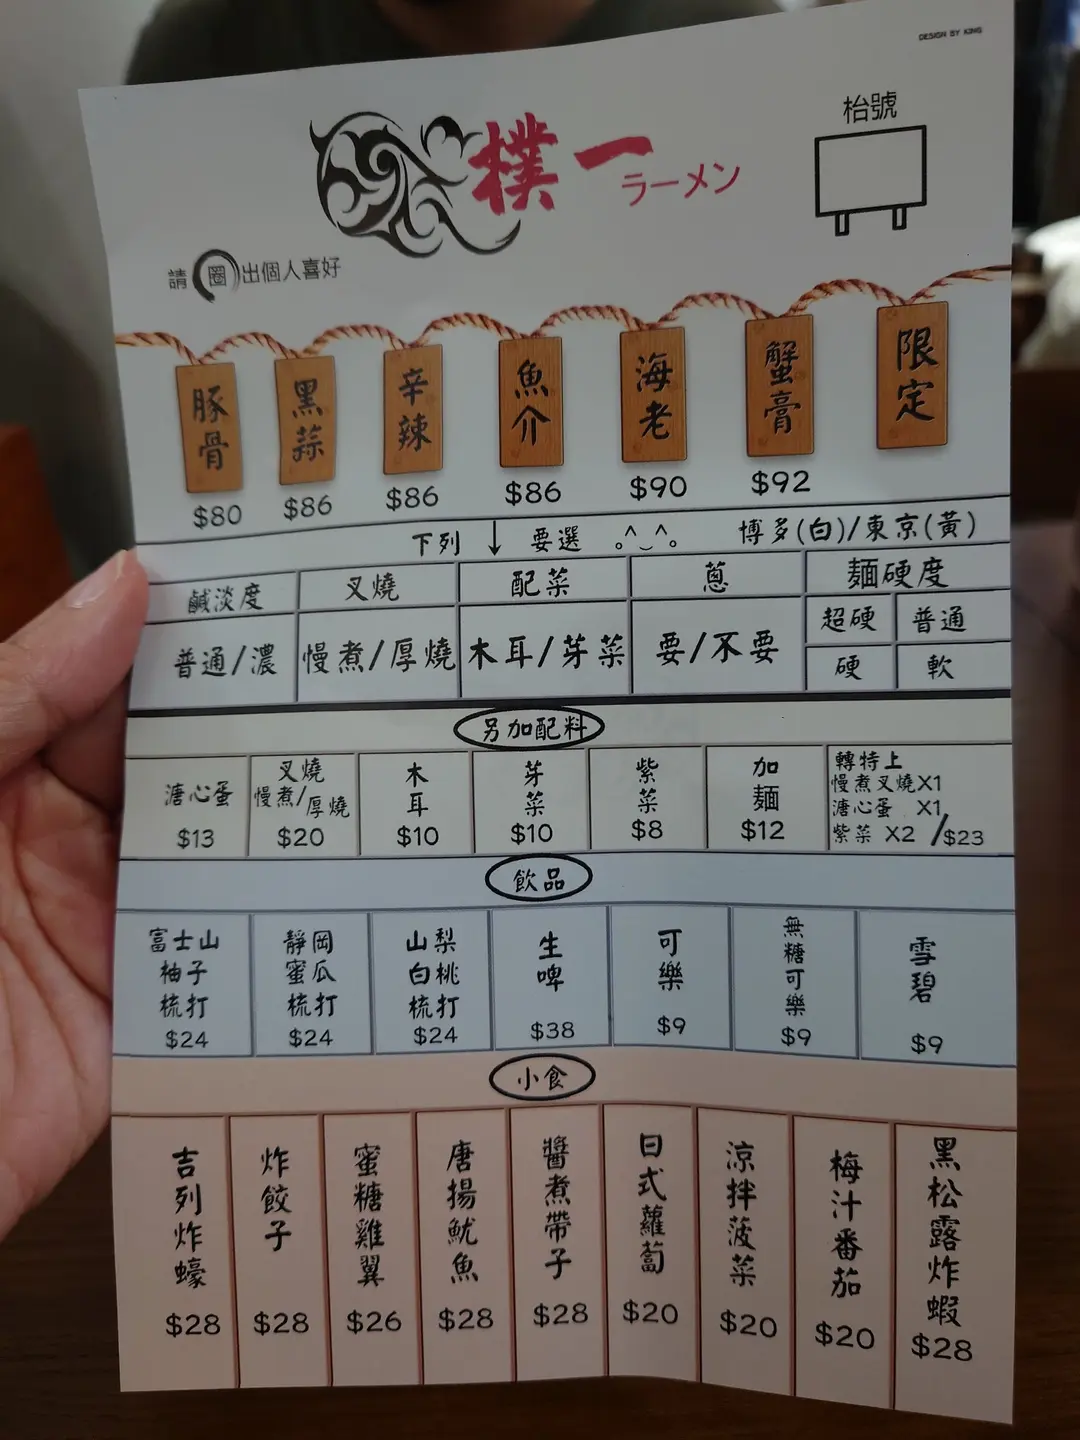 DESIGN BY KING
樸一
ラーメン
枱號
請圈出個人喜好
豚骨
$80
黑蒜
$86
辛辣
$86
魚介
$86
海老
$90
蟹膏
$92
限定
下列↓要選 ｡^‿^｡ 博多(白)/東京(黃)
鹹淡度
叉燒
配菜
蔥
麵硬度
普通/濃
慢煮/厚燒
木耳/芽菜
要/不要
超硬
普通
硬
軟
另加配料
溏心蛋
$13
叉燒
慢煮/厚燒
$20
木耳
$10
芽菜
$10
紫菜
$8
加麵
$12
轉特上
慢煮叉燒X1
溏心蛋 X1
紫菜 X2 /$23
飲品
富士山
柚子
梳打
$24
靜岡
蜜瓜
梳打
$24
山梨
白桃
梳打
$24
生啤
$38
可樂
$9
無糖可樂
$9
雪碧
$9
小食
吉列炸蠔
$28
炸餃子
$28
蜜糖雞翼
$26
唐揚魷魚
$28
醬煮帶子
$28
日式蘿蔔
$20
涼拌菠菜
$20
梅汁番茄
$20
黑松露炸蝦
$28